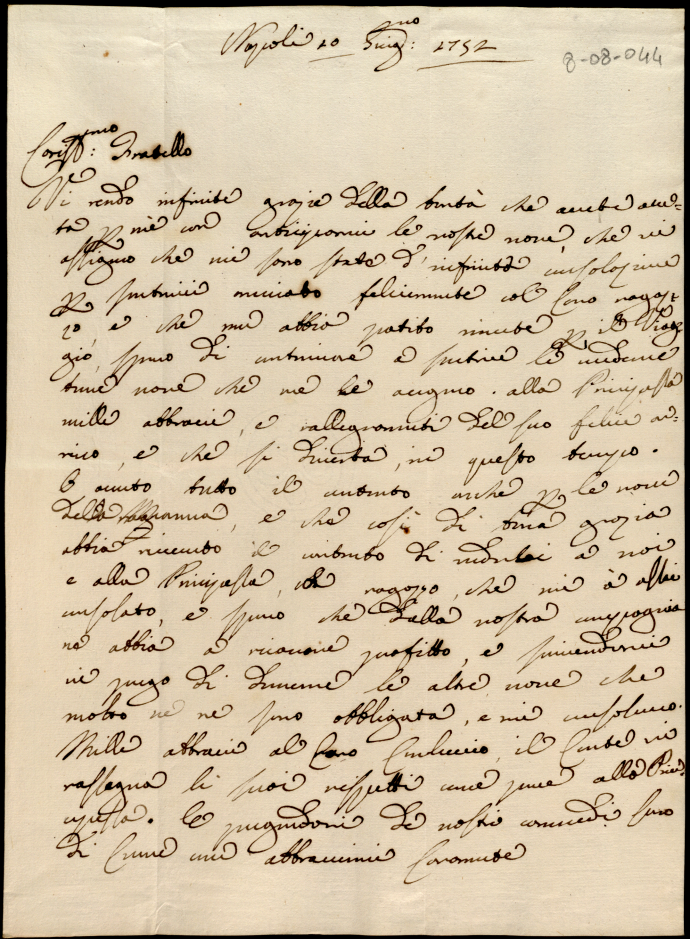 Napoli 20 Giug:no 1752
8-08-044
Cariss:mo Fratello
Vi rendo infinite grazie della bontà che avete avu=
ta p mè con le nostre nove, che vi
assiguro che mi sono state d'infinita consolazione
p sentirvi arrivato felicemente col Caro ragaz=
zo, e che non abbia patito niente p il Viag
gio, spero di continuare a sentire le
nove che me le auguro. alla Principessa
mille abbracci, e rallegramenti del suo felice ar=
rivo, e che si diverta, in questo tempo.
O avuto tutto il contento anche p le nove
della Mamma, e che così di bona grazia
abbia ricevuto il contento di mandar a noi
e alla Principessa, il ragazzo, che mi à assai
consolato, e spero che dalla nostra compagnia
ne abbia a ricavare profitto, e
vi prego di darmene le altre nove che
molto ne sono obbligata, e mi consolano.
Mille abbracci al Caro Carluccio, il Conte vi
rassegna li suoi rispetti come pure alla Prin=
cipessa. E pregandovi de vostri comandi sono
di Core con abbracciarvi Caramente